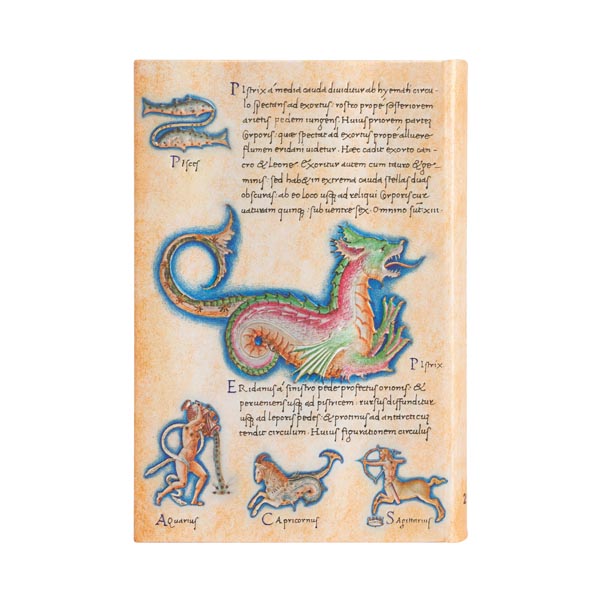 PIstrix á media cauda diuiditur ab hyemali circu-
lo spectans ad exortus: rostro propé posteriorem
arietis pedem iungens. Huius priorem partem
Corporis: quæ spectat ad exortus propé alluere
flumen eridani uidetur. Hæc cadit exorto can-
cro & Leone. Exoritur autem cum tauro & ge-
minis: sed hab& in extrema cauda stellas duas
obscuras. ab eo loco usq; ad reliqui Corporis cur
uaturam quinq;. sub uentre sex. Omnino sūt xiii.
PIsces
PIstrix
ERidanus á sinistro pede profectus orionis: &
perueniens usq; ad pistricem. rursus diffunditur
usq; ad leporis pedes: & protinus ad antarcticū
tendit circulum. Huius figurationem circulus
AQuarius
CApricornus
SAgittarius